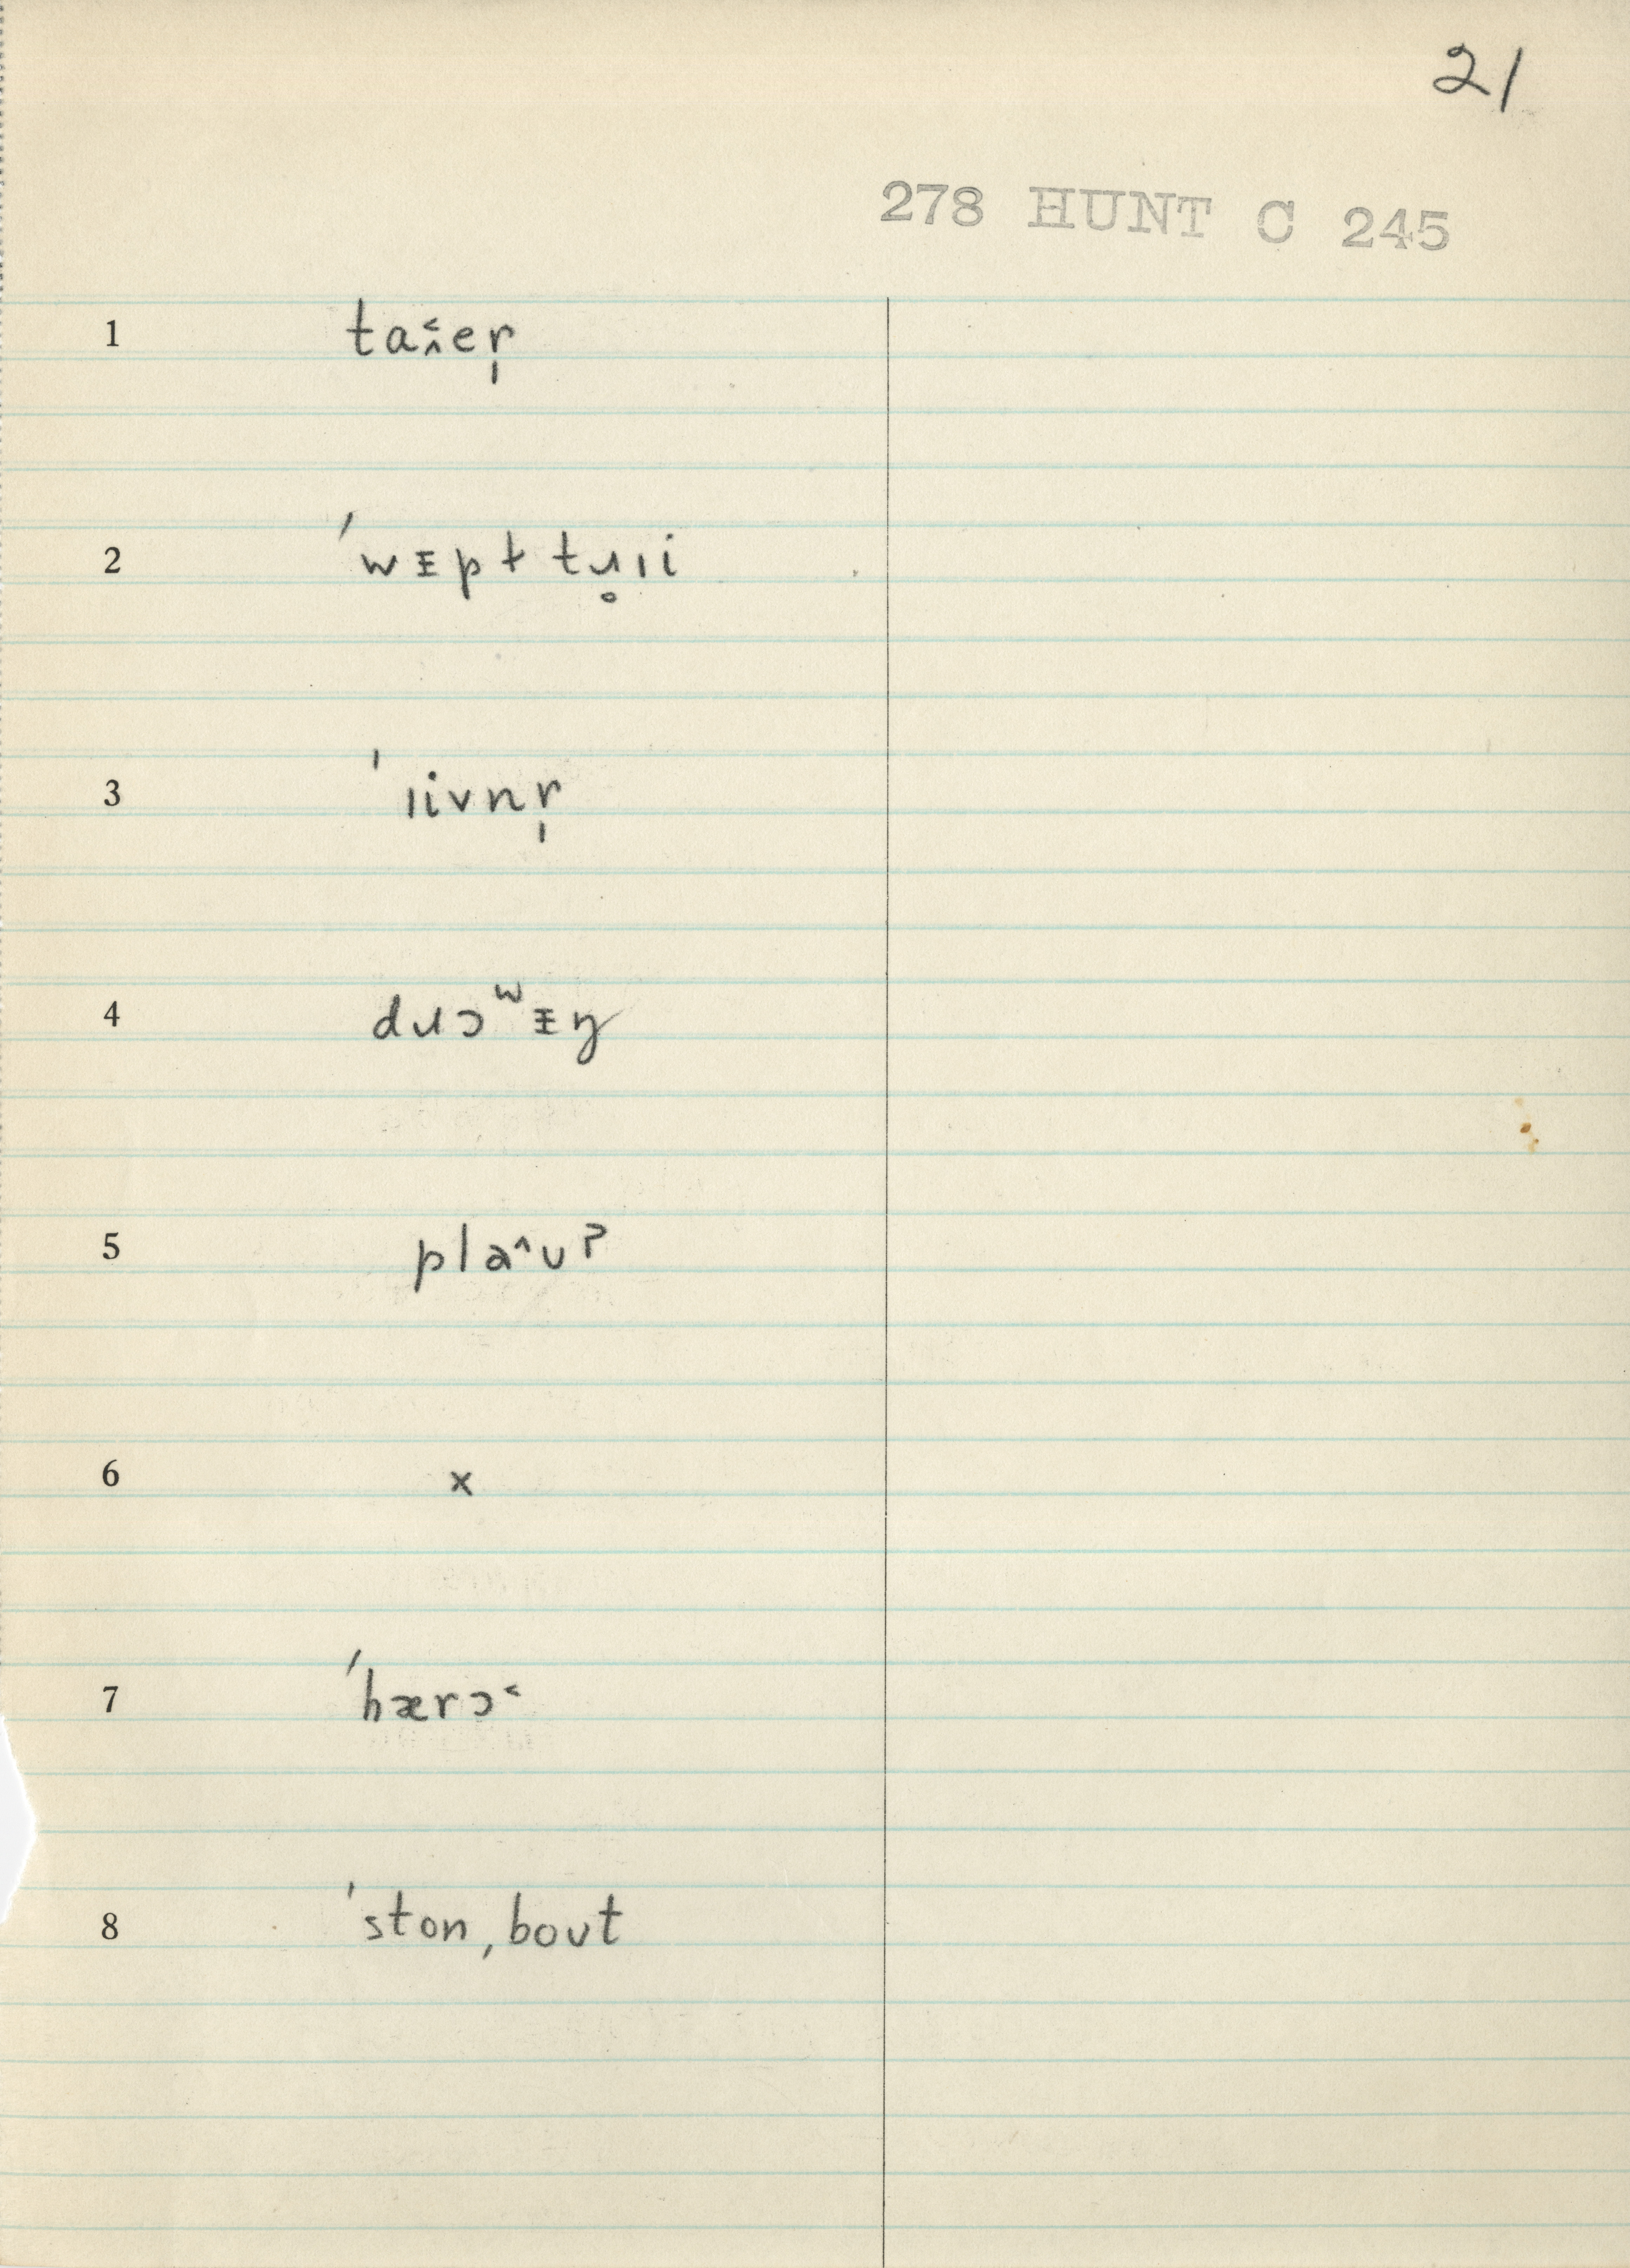 21
278 HUNT C 245
1 ta˂̭er̩
2 ˈwᵻpɫ tɹ̥ɪi
3 ˈɪivnr̩
4 dɹɔʷᵻŋ
5 pla^ʊʔ
6 x
7 ˈhærɔ˂
8 ˈston,boʊt